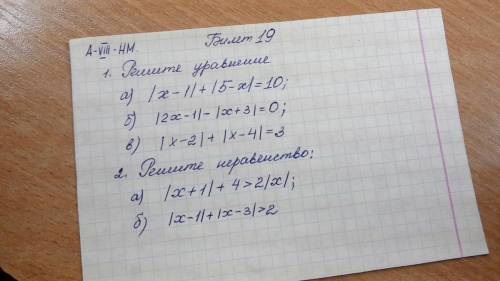 А-VIII-НМ. Билет 19
1. Решите уравнение
а) |x-1|+|5-x|=10;
б) |2x-1|-|x+3|=0;
в) |x-2|+|x-4|=3
2. Решите неравенство:
а) |x+1|+4>2|x|;
б) |x-1|+|x-3|>2